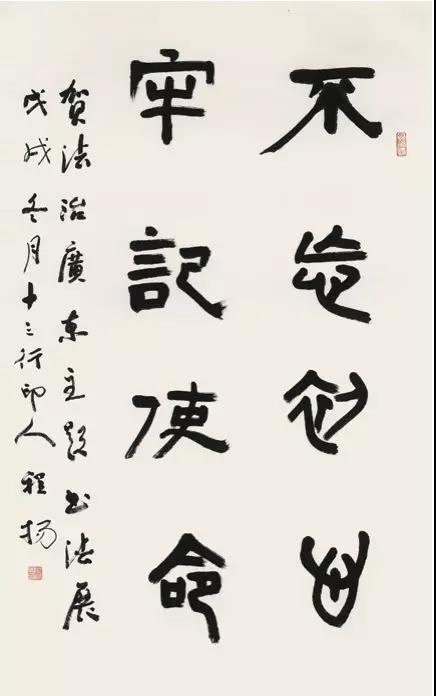 不忘初心
牢記使命
賀法治廣東主題书法展
戊戌冬月十三行印人程揚